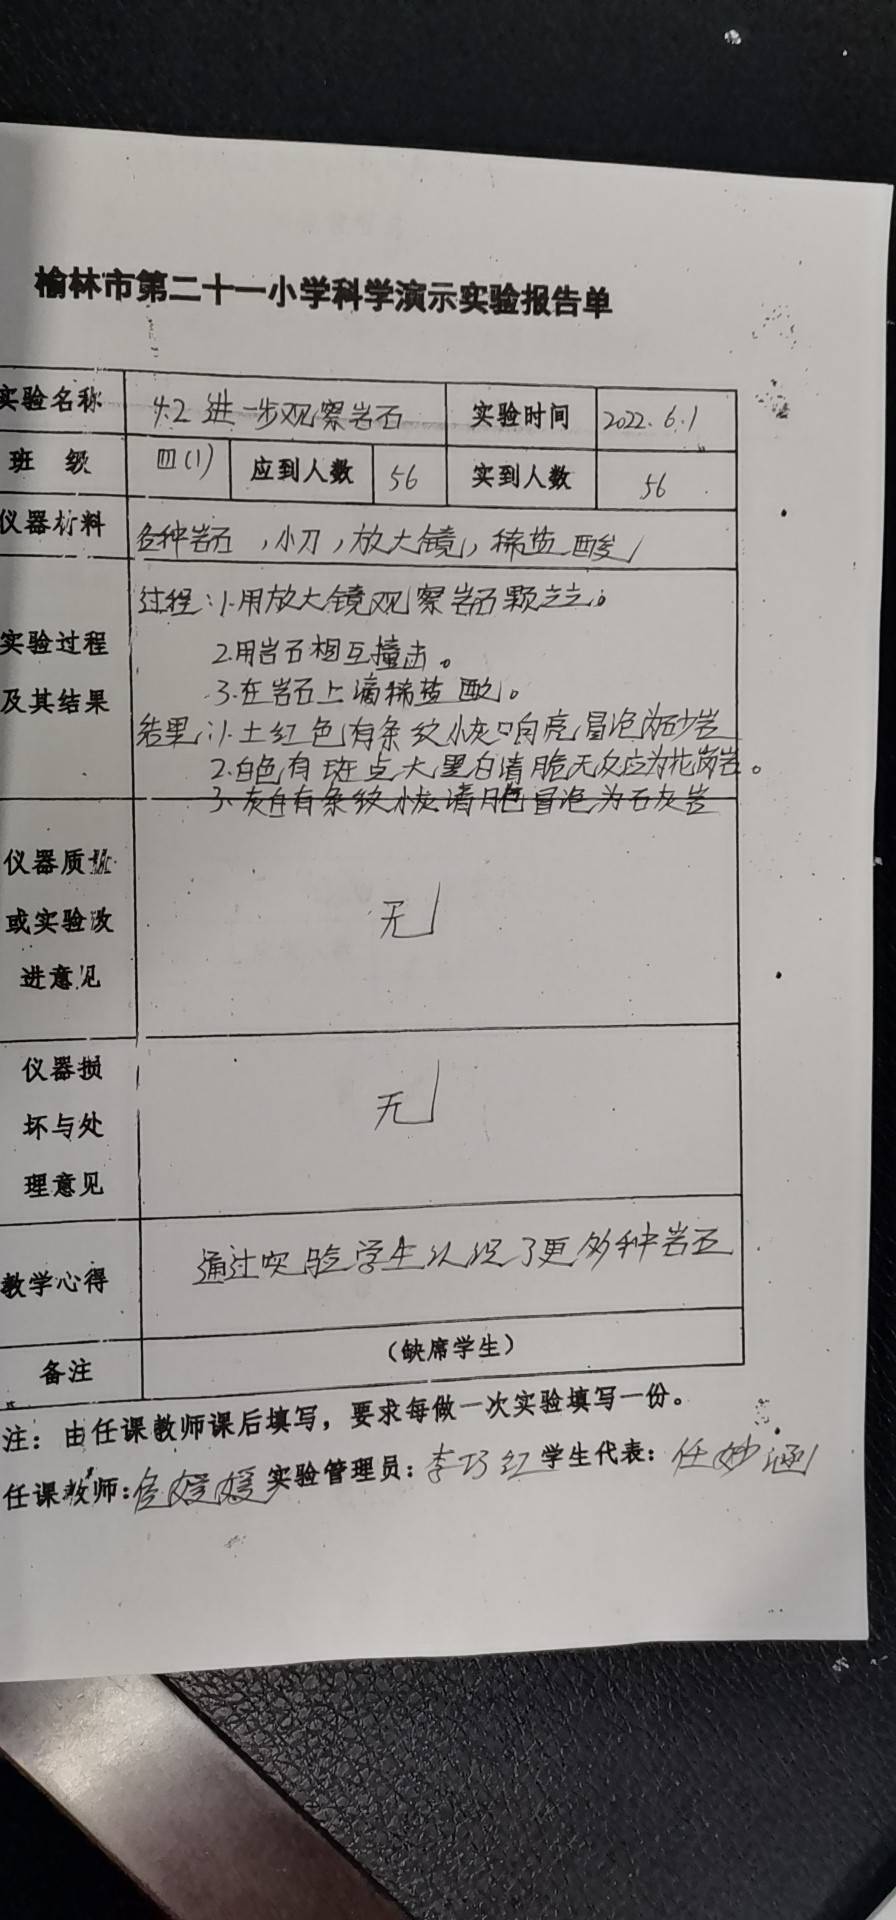 榆林市第二十一小学科学演示实验报告单
实验名称 4.2 进一步观察岩石 实验时间 2022.6.1
班级 四(1) 应到人数 56 实到人数 56
仪器材料 各种岩石,小刀,放大镜,稀盐酸
过程:1.用放大镜观察岩石颗粒。
实验过程 2.用岩石相互撞击。
及其结果 3.在岩石上滴稀盐酸。
结果:1.土红色有条纹小灰响亮冒泡为砂岩
2.白色有斑点大黑白清脆无反应为花岗岩。
3.灰色有条纹小灰清脆冒泡为石灰岩
仪器质量
或实验改 无
进意见
仪器损
坏与处 无
理意见
教学心得 通过实验学生认识了更多种岩石
备注 (缺席学生)
注:由任课教师课后填写,要求每做一次实验填写一份。
任课教师: 媛媛 实验管理员:李巧红 学生代表:任妙涵